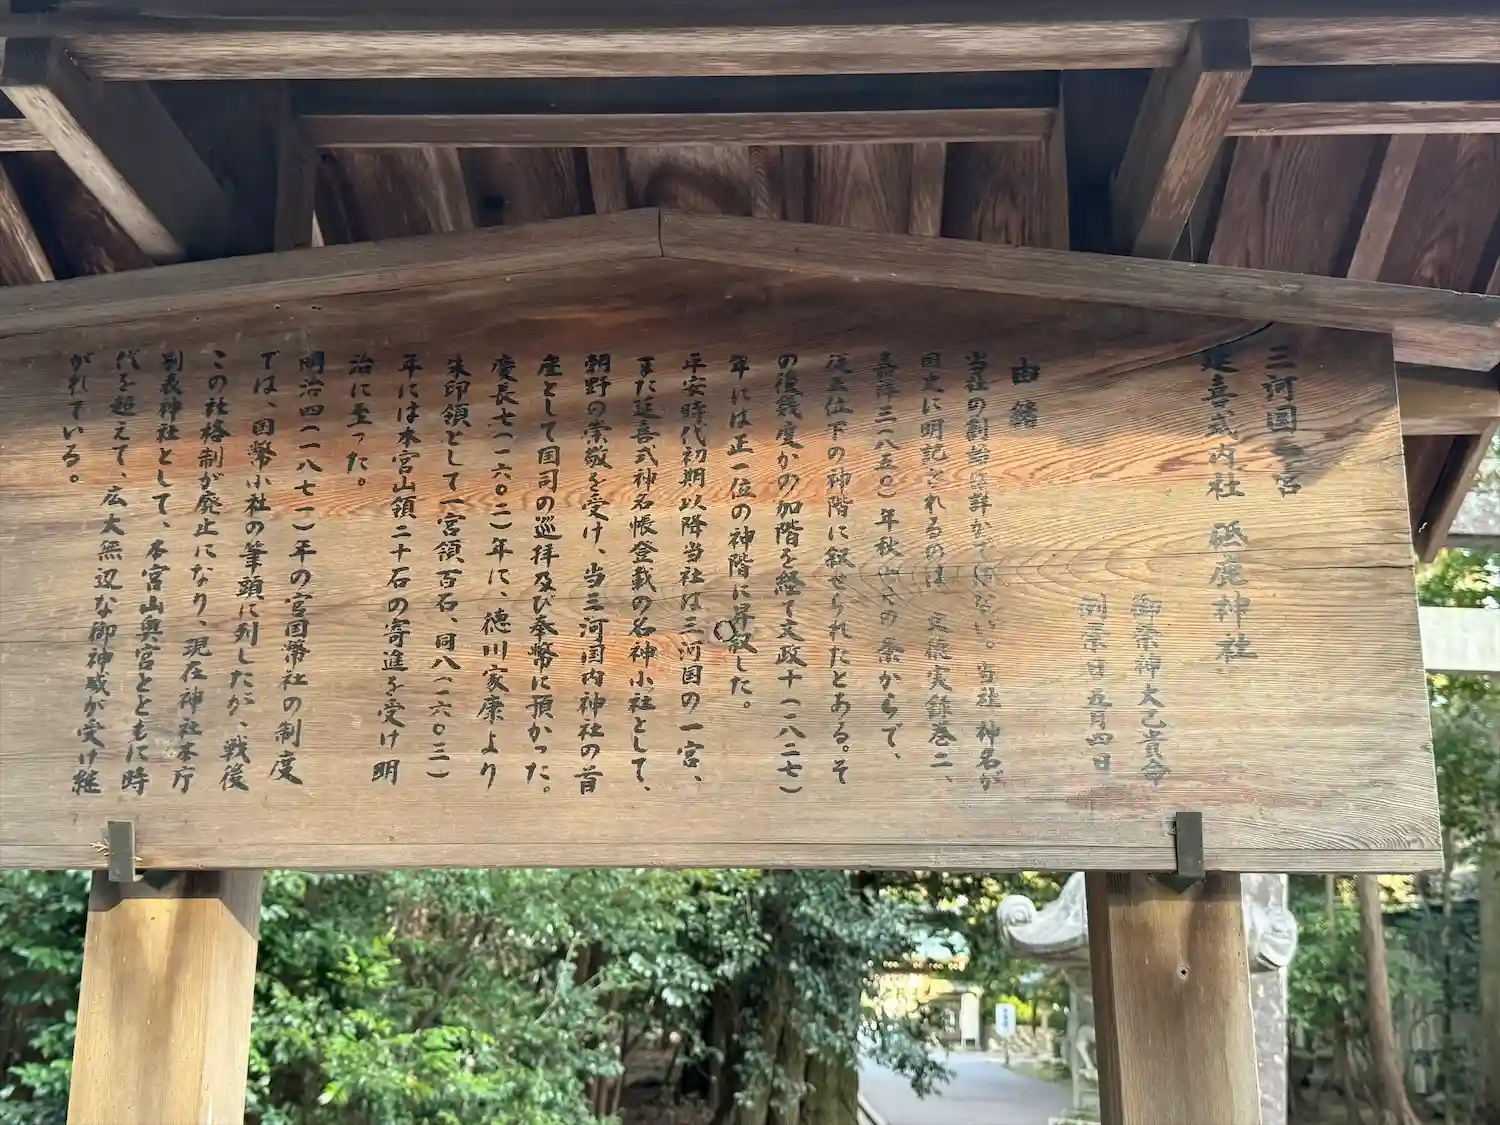 三河国一宮
延喜式内社　砥鹿神社
御祭神大己貴命
例祭日五月四日
由緒
当社の創始は詳かではない。当社神名が
国史に明記されるのは、文徳実録巻二、
嘉祥三（八五〇）年秋の条からで、
従五位下の神階に叙せられたとある。そ
の後幾度かの加階を経て文政十（一八二七）
年には正一位の神階に昇叙した。
平安時代初期以降当社は三河国の一宮、
また延喜式神名帳登載の名神小社として、
朝野の崇敬を受け、当三河国内神社の首
座として国司の巡拝及び奉幣に預かった。
慶長七（一六〇二）年に、徳川家康より
朱印領として一宮領百石、同八（一六〇三）
年には本宮山領二十石の寄進を受け明
治に至った。
明治四（一八七一）年の官国幣社の制度
では、国幣小社の筆頭に列したが、戦後
この社格制が廃止になり、現在神社本庁
別表神社として、本宮山奥宮とともに時
代を超えて、広大無辺な御神威が受け継
がれている。